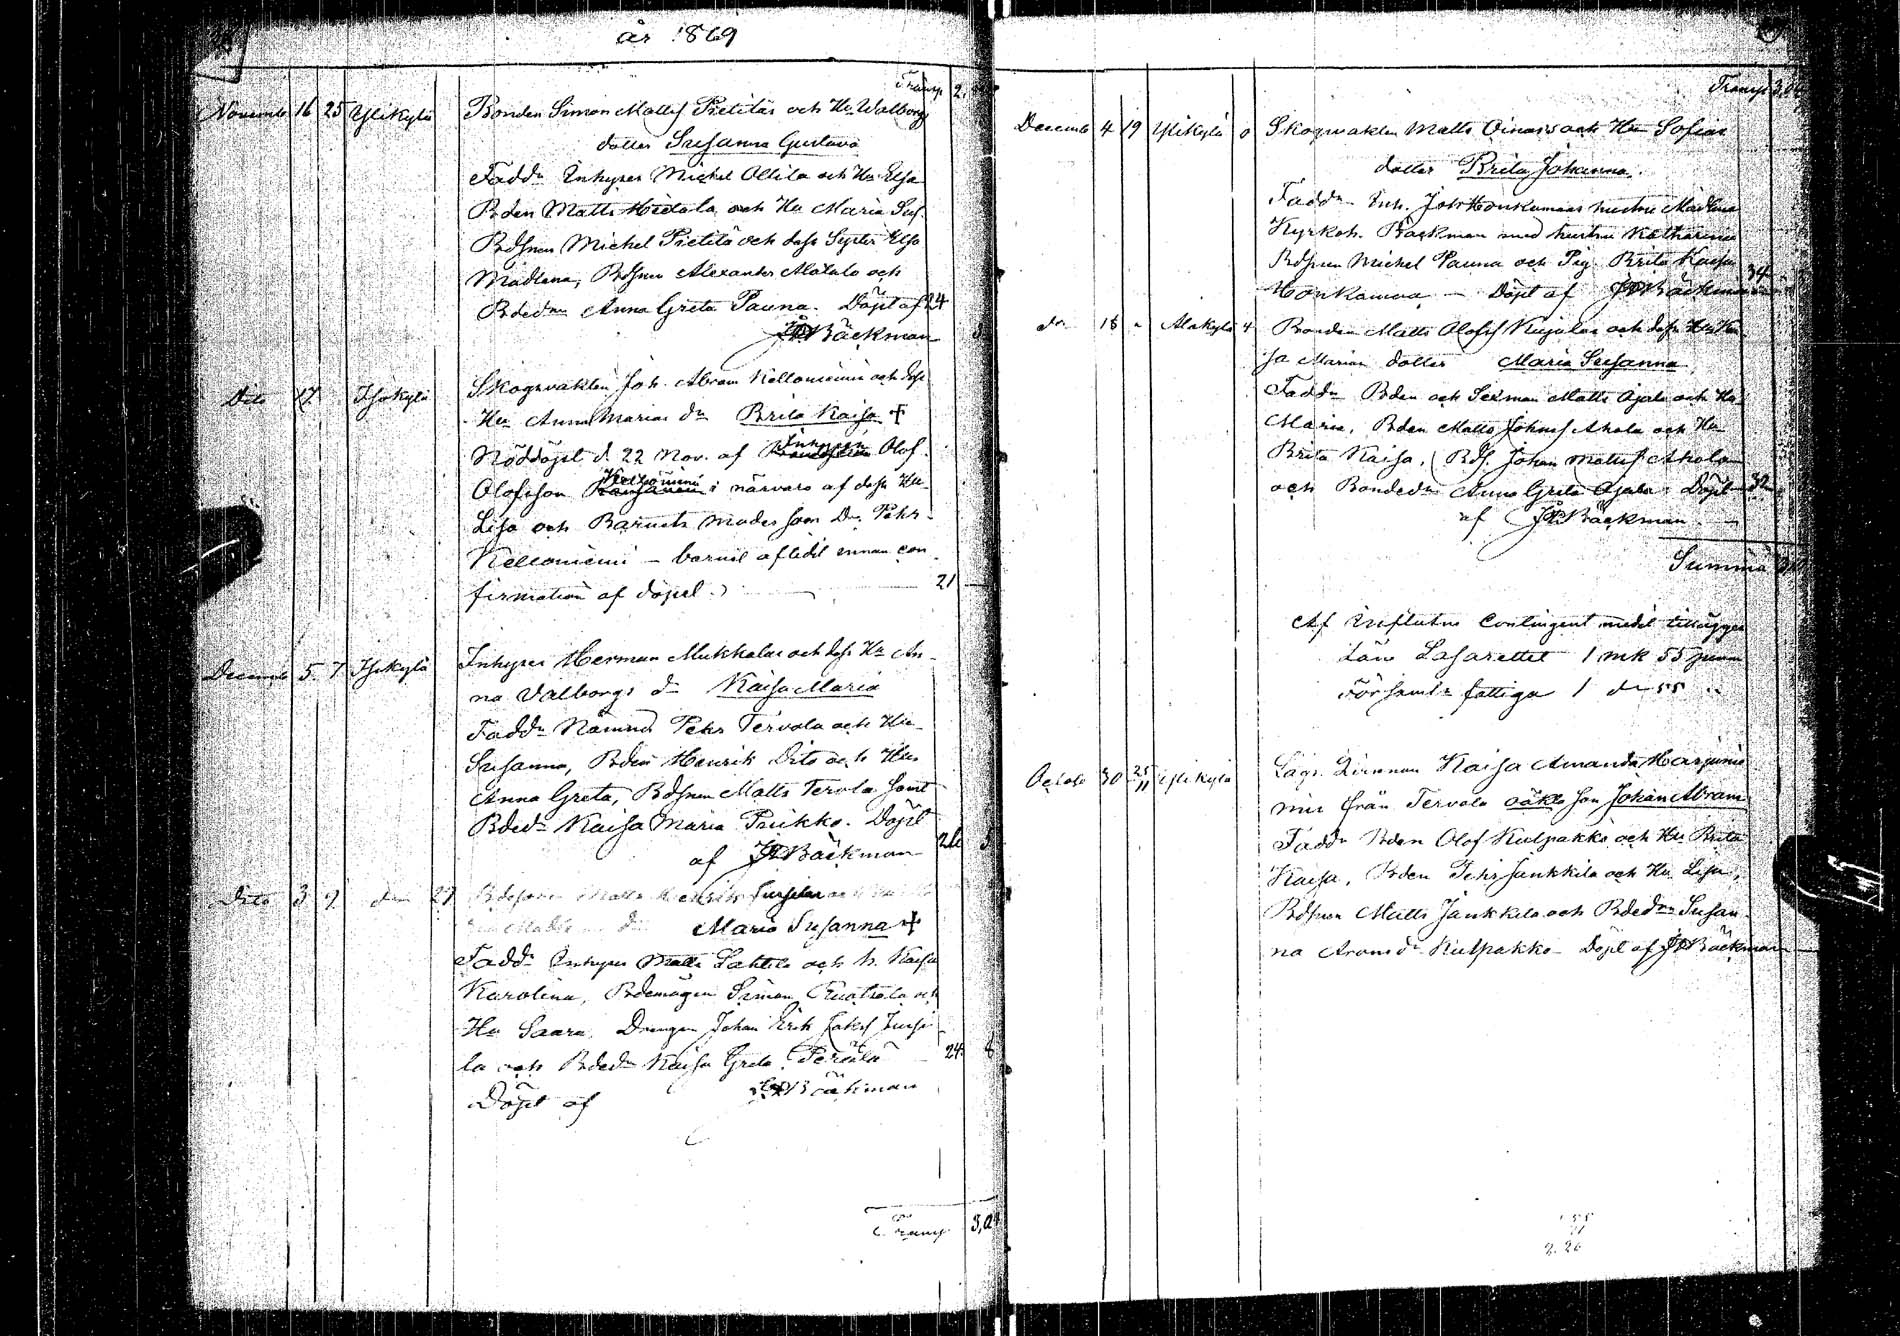 år 1869
Transp
Novemb 16 25 Ylikylä Bonden Simon Mattss Pietiläs och Hu Walborgs
dotter Susanna Gustava
Fadd. Inhyses Michel Ollila och Hu Elsa
Bden Matts Hietala och Hu Maria Sus.
Bdsnen Michel Pietilä och dess Syster Elsa
Madlena, Bdsnen Alexander Alatalo och
Bdedn Anna Greta Pauna. Döpt af 24
JWBäckman
Dito 17 Isokylä Skogvakten Joh. Abram Kelloniemis och dess
Hu Anna Marias dr Brita Kaisa +
Nöddöpt d. 22 Nov. af Inhyses Olof
Olofsson Kelloniemi i närvaro af dess Hu
Lisa och Barnets moder som Dr Pehr
Kelloniemi – barnet aflidit innan con
firmation af döpel. 21
Decemb 5 7 Isokylä Inhyses Herman Mukkalas och dess Hu An
na Valborgs dr Kaisa Maria
Fadd. Nämnd. Pehr Tervola och Hu
Susanna, Bden Henrik Dito och Hu
Anna Greta, Bdsnen Matts Tervola samt
Bdedr Kaisa Maria Priikko. Döpt
af JWBäckman
Dito 3 9 27 Bdesonen Matts Henrik
Maria Susanna +
Fadd. Inhyses Matts Lahtela och h. Kaisa
Karolina, Bdemågen Simon Ruotsala och
Hu Saara, Drengen Johan Erik Jakss Jussi
la och Bdedr Kaisa Greta Perälä 24 8
Döpt af JWBäckman
Transp 3,04
Transp 3,04
Decemb 4 19 Ylikylä 0 Skogvakten Matts Oinas's och Hu Sofias
dotter Brita Johanna.
Fadd. Inh. Joh Honkamaas hustru Madlena
Kyrkoh. Bäckman med hustru Katharina
Bdsnen Michel Pauna och Pig. Brita Kaisa 34
Honkamaa – Döpt af JWBäckman
do 18 " Alakylä 4 Bonden Matts Olofss Kujalas och dess Hu Kai
sa Marias dotter Maria Susanna
Fadd. Bden och Sexman Matts Ojala och Hu
Maria, Bden Matts Johnss Ahola och Hu
Brita Kaisa, Bds. Johan Mattss Ahola
och Bondedr Anna Greta Ojala. Döpt 32
af JWBäckman
Summa
Af influtne Contingent medel tillägges
Läns Lasarettet 1 mk 55 penni
Församl:s fattiga 1 d:o 55 "
Octob 30 25/11 Ylikylä Lägs. Qvinnan Kaisa Amanda Harjunie
mis från Tervola oäkta son Johan Abram
Fadd. Bden Olof Kulpakko och Hu Brita
Kaisa, Bden Pehr Jankkila och Hu Lisa,
Bdsnen Matts Jankkila och Bdedrn Susan
na Aronsdr Kulpakko – Döpt af JWBäckman
2.26